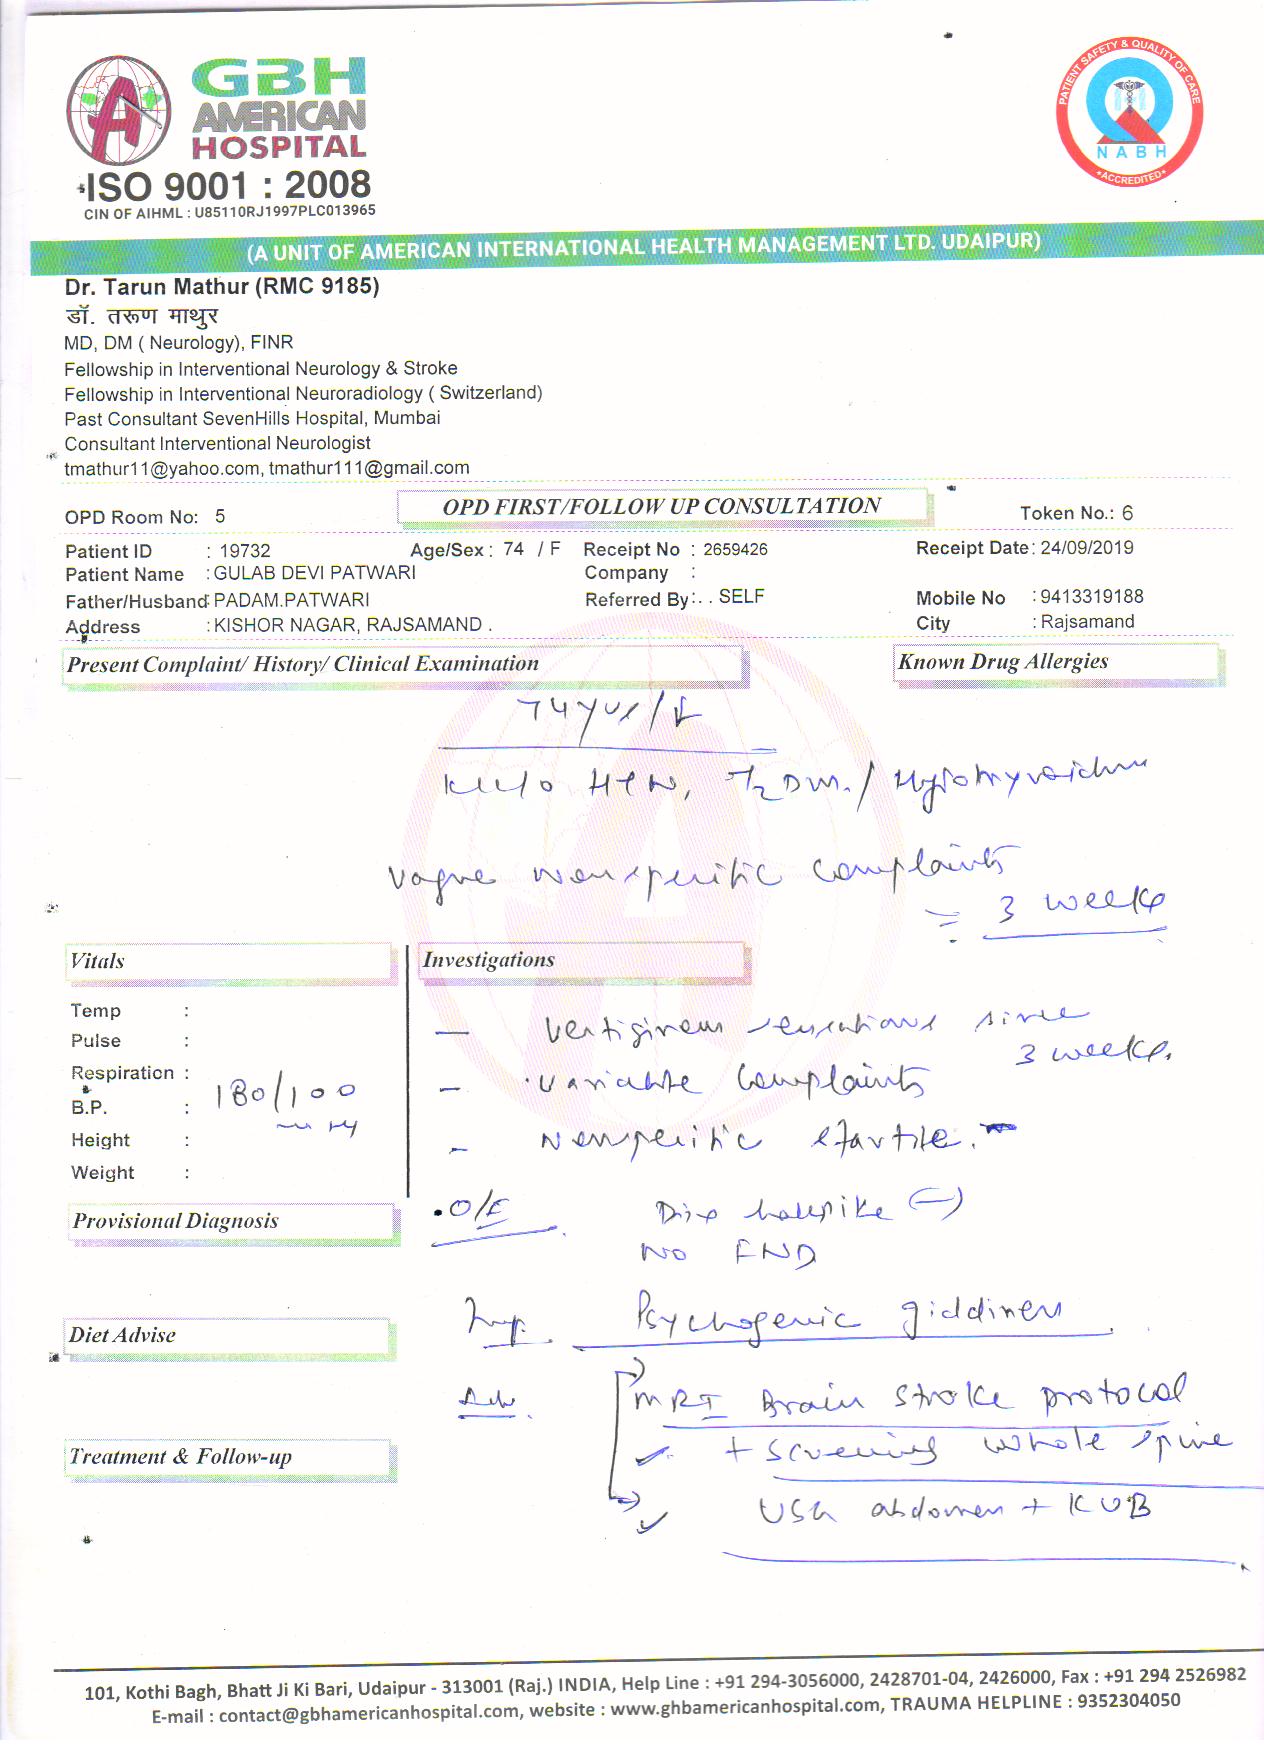 GBH
AMERICAN
HOSPITAL
ISO 9001 : 2008
CIN OF AIHML : U85110RJ1997PLC013965
PATIENT SAFETY & QUALITY OF CARE
NABH
ACCREDITED
(A UNIT OF AMERICAN INTERNATIONAL HEALTH MANAGEMENT LTD. UDAIPUR)
Dr. Tarun Mathur (RMC 9185)
डॉ. तरूण माथुर
MD, DM ( Neurology), FINR
Fellowship in Interventional Neurology & Stroke
Fellowship in Interventional Neuroradiology ( Switzerland)
Past Consultant SevenHills Hospital, Mumbai
Consultant Interventional Neurologist
tmathur11@yahoo.com, tmathur111@gmail.com
OPD Room No: 5 OPD FIRST/FOLLOW UP CONSULTATION Token No.: 6
Patient ID : 19732 Age/Sex : 74 / F Receipt No : 2659426 Receipt Date: 24/09/2019
Patient Name : GULAB DEVI PATWARI Company :
Father/Husband: PADAM.PATWARI Referred By:. . SELF Mobile No : 9413319188
Address : KISHOR NAGAR, RAJSAMAND . City : Rajsamand
Present Complaint/ History/ Clinical Examination Known Drug Allergies
74 yrs/F
K/c/o HTN, T2DM./ Hypothyroidism
Vague nonspecific complaints
3 weeks
Vitals Investigations
Temp :
Pulse :
Respiration :
B.P. : 180/100
Height :
Weight :
- Vertiginous sensations since
3 weeks.
- variable complaints
- Nonspecific
Provisional Diagnosis
O/E Dix hallpike (-)
No FND
Imp. Psychogenic giddiness
Diet Advise
Adv. MRI Brain stroke protocol
+ screening whole spine
Treatment & Follow-up
USG abdomen + KUB
101, Kothi Bagh, Bhatt Ji Ki Bari, Udaipur - 313001 (Raj.) INDIA, Help Line : +91 294-3056000, 2428701-04, 2426000, Fax : +91 294 2526982
E-mail : contact@gbhamericanhospital.com, website : www.ghbamericanhospital.com, TRAUMA HELPLINE : 9352304050